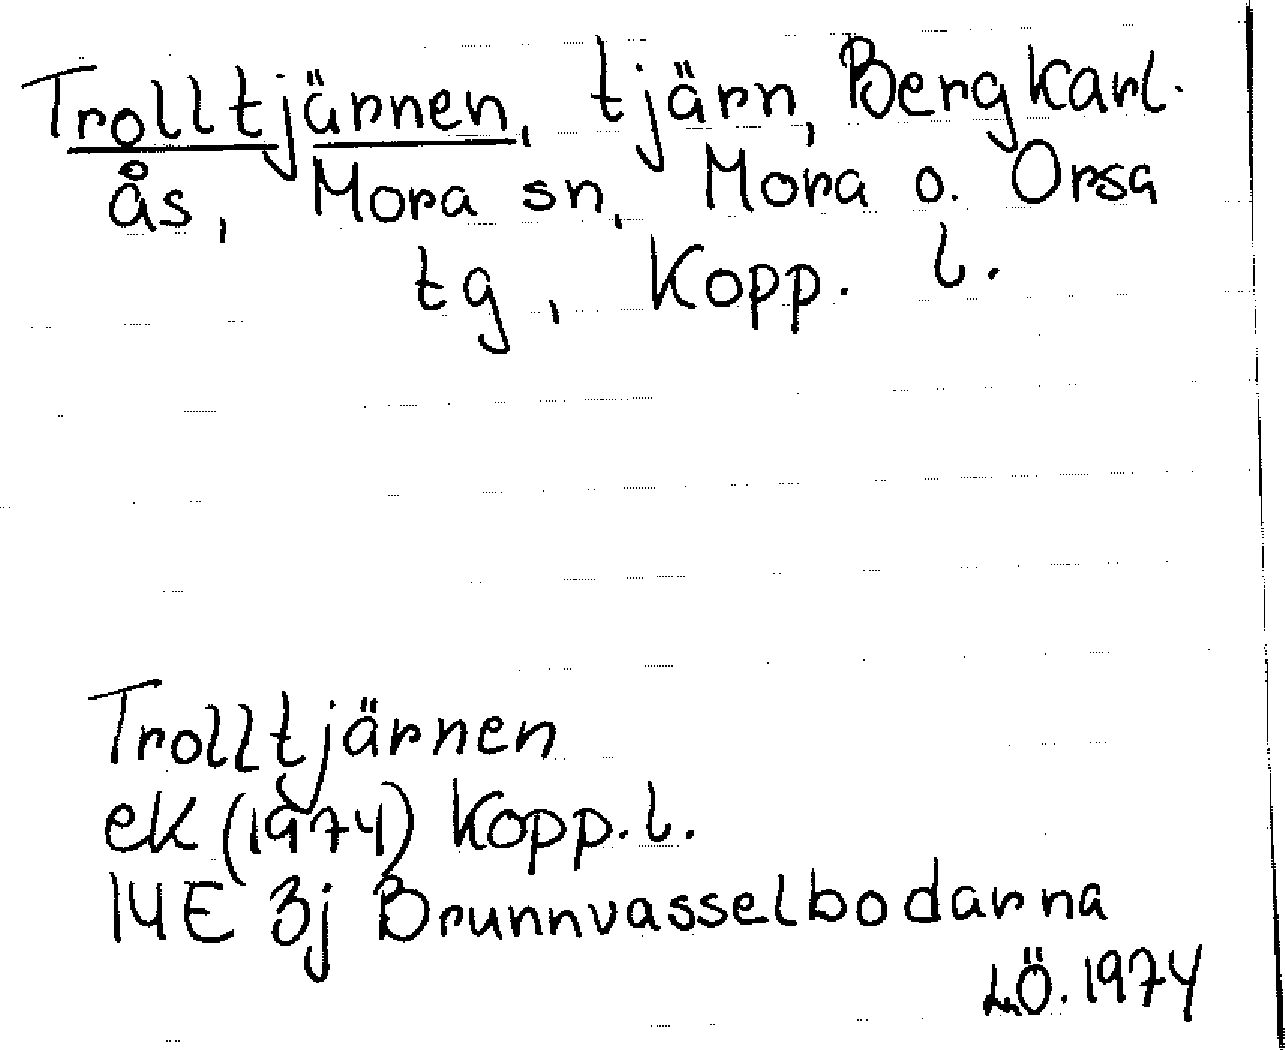 Trolltjärnen, tjärn, Bergkarl-
ås, Mora sn, Mora o. Orsa
tg, Kopp. l.
Trolltjärnen
ek (1974) Kopp. l.
14E 3j Brunnvasselbodarna
LÖ. 1974